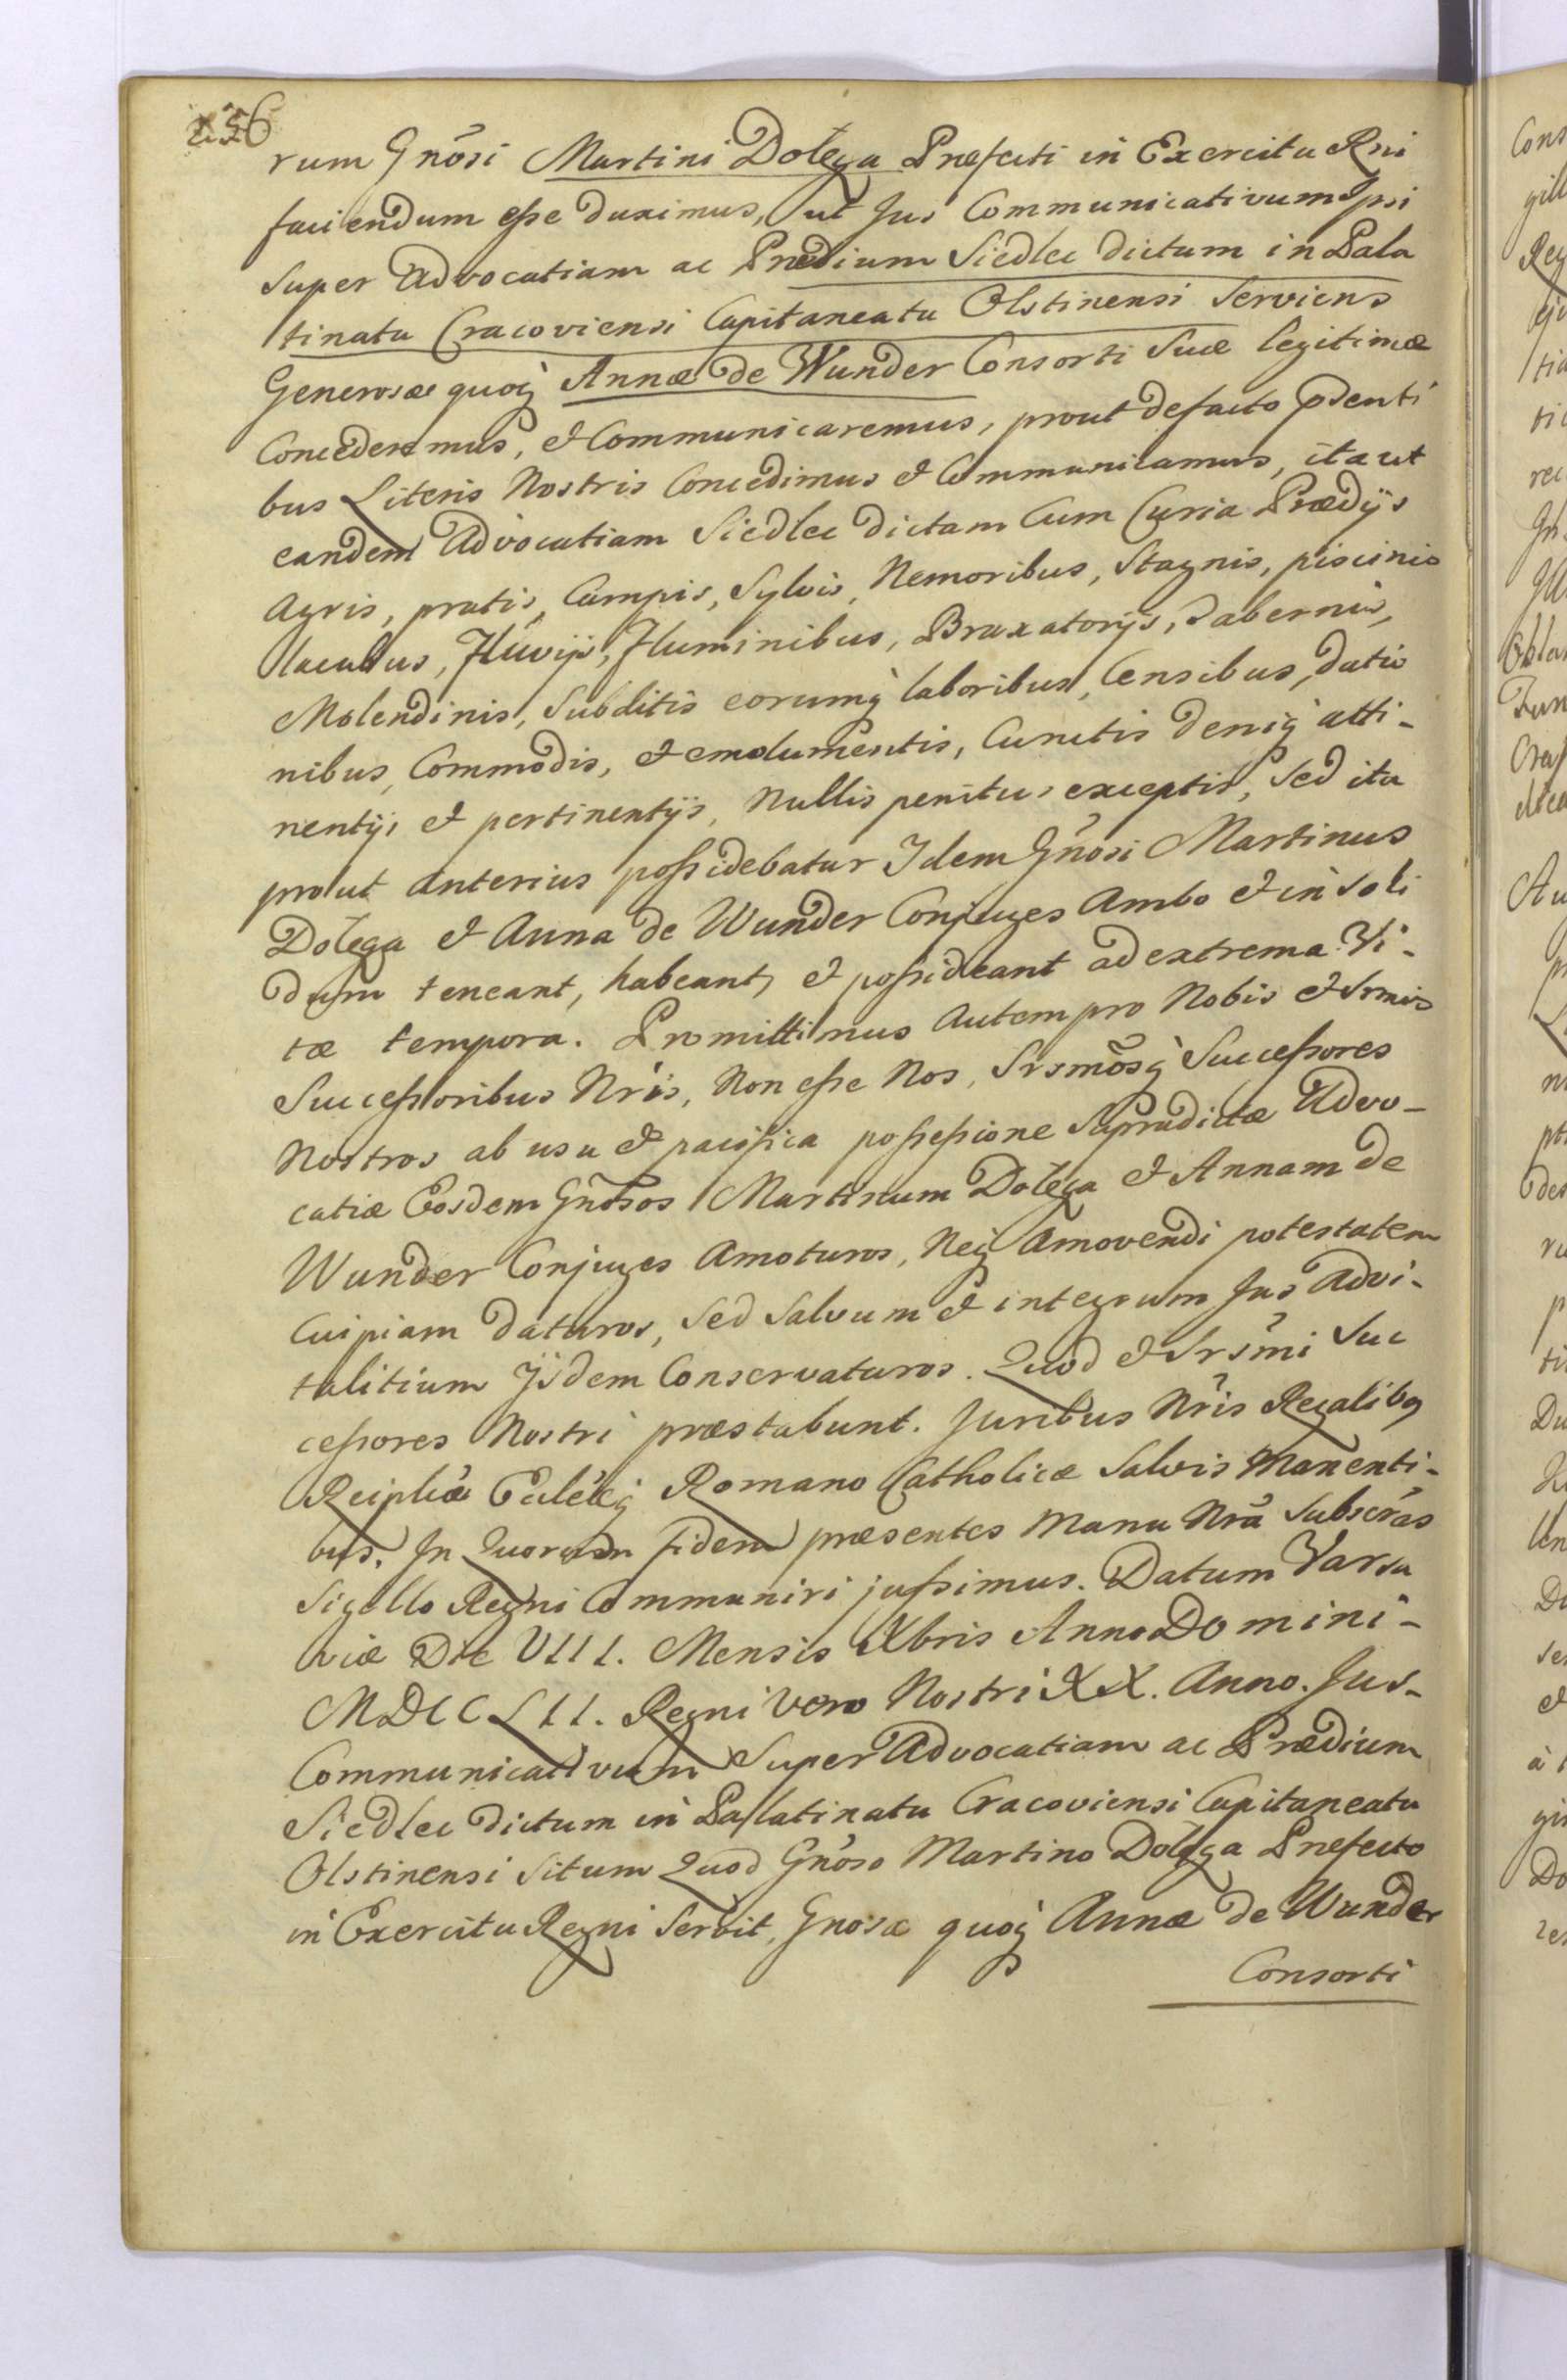 256
rum Gnõsi Martini Dolęga Præfecti in Exercitu Rni
faciendum eſse duximus, ut Jus Communicativum Ipsi
Super Advocatiam ac Prædium Siedlec dictum in Pala
tinatu Cracoviensi Capitaneatu Olstinensi Serviens
Generosæ quoq̀ Annæ de Wunder Consorti Suæ legitimæ
Concederemus, et Communicaremus, prout defacto psenti
bus Literis Nostris Concedimus et Communicamus, ita ut
eandem Advocatiam Siedlec dictam Cum Curia Prædijs
Agris, pratis, Campis, Sylvis, Nemoribus, Stagnis, piscinis
lacubus, Fluvijs, Fluminibus, Braxatorijs, Tabernis,
Molendinis, Subditis eorumq̀ laboribus, Censibus, datio
nibus, Commodis, et emolumentis, Cunctis deniq̀ atti-
nentijs et pertinentijs, Nullis penitus exceptis, Sed ita
prout anterius poſsidebatur Idem Gnõsi Martinus
Dolęga et Anna de Wunder Conjuges Ambo et in Soli
dum teneant, habeant, et poſsideant ad extrema Vi-
tæ tempora. Promittimus Autem pro Nobis et Srmis
Succeſsoribus Nris, Non eſse Nos, Srsmõsq̀ Succeſsores
Nostros ab usu et pacifica poſseſsione Supradictæ Advo-
catiæ Eosdem Gnõsos Martinum Dolęga et Annam de
Wunder Conjuges Amoturos, Neq̀ Amovendi potestatem
Cuipiam daturos, Sed Salvum et integrum Jus Advi-
talitium Ijsdem Conservaturos. Quod et Srsmi Suc
ceſsores Nostri præstabunt. Juribus Nris Regalibq
Reiplicæ Eccleæq̀ Romano Catholicæ Salvis Manenti-
bus. In Quorum fidem præsentes Manu Nrã Subscras
Sigillo Regni Communiri juſsimus. Datum Varsa
viæ Die VIII. Mensis Xbris Anno Domini-
MDCCLII. Regni Vero Nostri XX. Anno. Jus-
Communicativum Super Advocatiam ac Prædium
Siedlec dictum in Palatinatu Cracoviensi Capitaneatu
Olstinensi Situm Quod Gnõso Martino Dolęga Præfecto
in Exercitu Regni Servit, Gnosæ quoq̀ Annæ de Wunder
Consorti